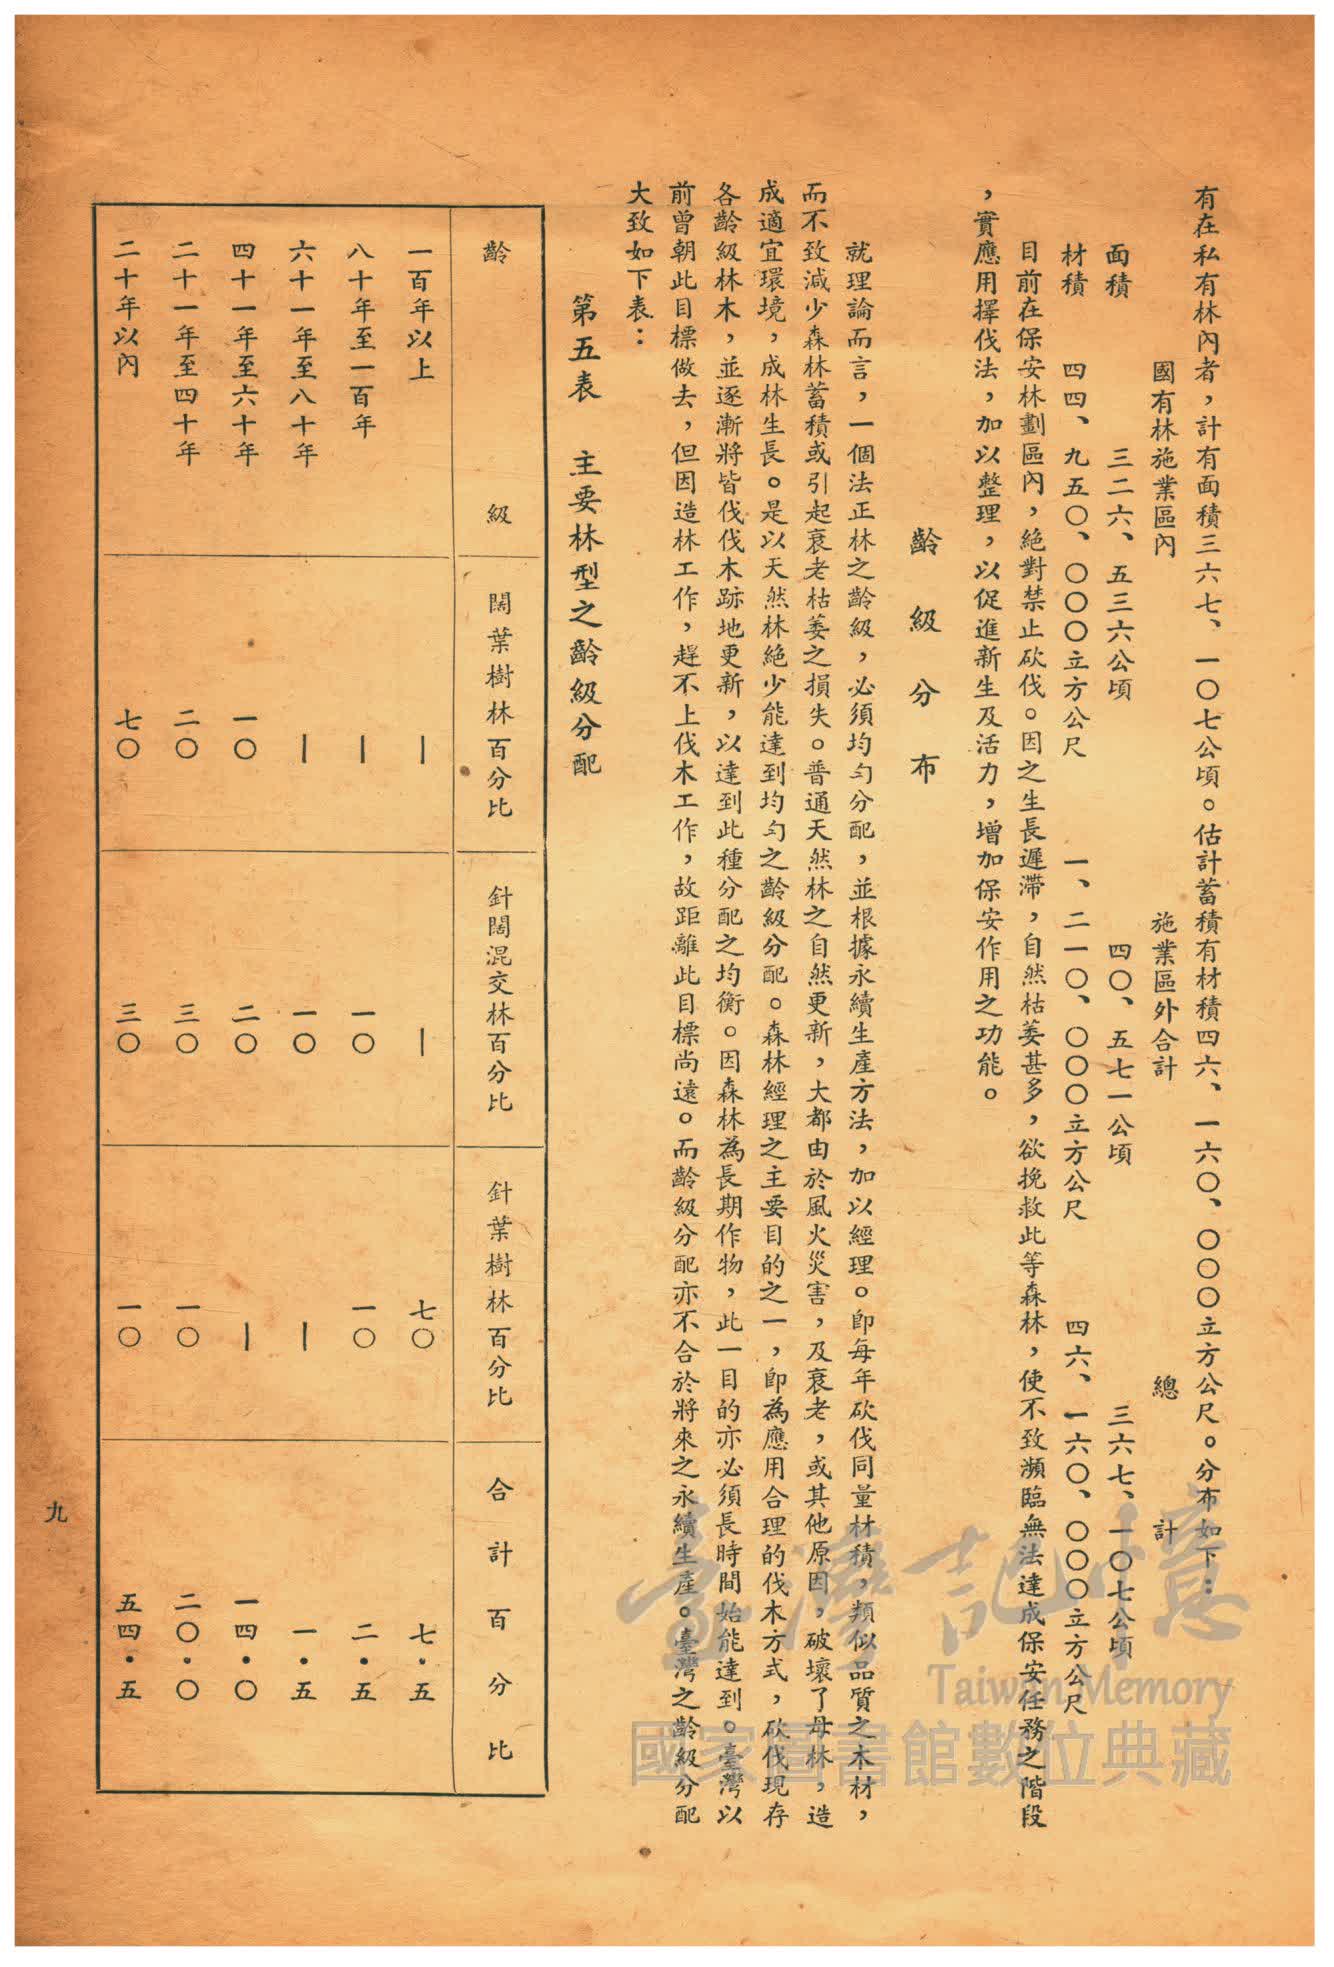 有在私有林內者，計有面積三六七、一〇七公頃。估計蓄積有材積四六、一六〇、〇〇〇立方公尺。分布如下：
國有林施業區內　施業區外合計　總計
面積　三二六、五三六公頃　四〇、五七一公頃　三六七、一〇七公頃
材積　四四、九五〇、〇〇〇立方公尺　一、二一〇、〇〇〇立方公尺　四六、一六〇、〇〇〇立方公尺
目前在保安林劃區內，絕對禁止砍伐。因之生長遲滯，自然枯萎甚多，欲挽救此等森林，使不致瀕臨無法達成保安任務之階段
，實應用擇伐法，加以整理，以促進新生及活力，增加保安作用之功能。
齡級分布
就理論而言，一個法正林之齡級，必須均勻分配，並根據永續生產方法，加以經理。即每年砍伐同量材積，類似品質之木材，
而不致減少森林蓄積或引起衰老枯萎之損失。普通天然林之自然更新，大都由於風火災害，及衰老，或其他原因，破壞了母林，造
成適宜環境，成林生長。是以天然林絕少能達到均勻之齡級分配。森林經理之主要目的之一，即為應用合理的伐木方式，砍伐現存
各齡級林木，並逐漸將皆伐伐木跡地更新，以達到此種分配之均衡。因森林為長期作物，此一目的亦必須長時間始能達到。臺灣以
前曾朝此目標做去，但因造林工作，趕不上伐木工作，故距離此目標尚遠。而齡級分配亦不合於將來之永續生產。臺灣之齡級分配
大致如下表：
第五表　主要林型之齡級分配
齡級　闊葉樹林百分比　針闊混交林百分比　針葉樹林百分比　合計百分比
一百年以上　—　—　七〇　七．五
八十年至一百年　—　一〇　一〇　二．五
六十一年至八十年　—　一〇　—　一．五
四十一年至六十年　一〇　二〇　—　一四．〇
二十一年至四十年　二〇　三〇　一〇　二〇．〇
二十年以內　七〇　三〇　一〇　五四．五
九
臺灣記憶
Taiwan Memory
國家圖書館數位典藏